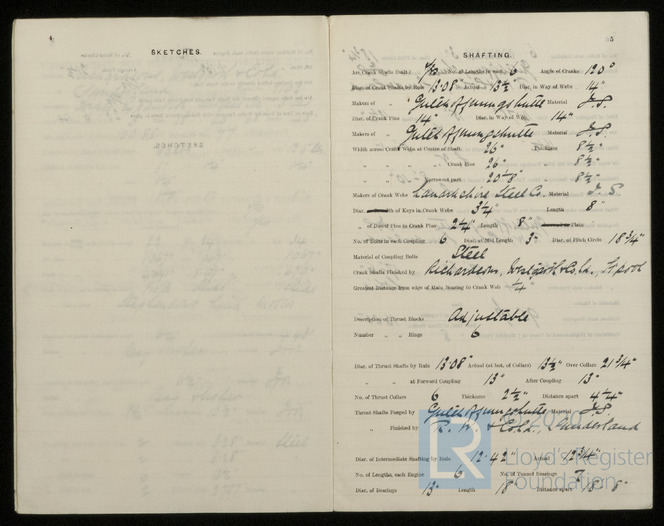 4
SKETCHES.
5
SHAFTING.
Are Crank Shafts Built? Yes No. of Lengths in each 6 Angle of Cranks 120°
Diar. of Crank Shafts by Rule 13.08" Actual 13½" Diar. in Way of Webs 14"
Makers of " Material I.S.
Diar. of Crank Pins 14" Diar. in Way of Webs 14"
Makers of " Material I.S.
Width across Crank Webs at Centre of Shaft 26" Thickness 8½"
" " " " Crank Pins 26" " 8½"
" " " " Narrowest part 20⅞" " 8½"
Makers of Crank Webs Lanarkshire Steel Co. Material I.S
Diar. of Keys in Crank Webs 3¼" Length 8"
" of Dowel Pins in Crank Pins 2¼" Length 8" Plain
No. of Bolts in each Coupling 6 Diar. at Mid Length 3" Diar. of Pitch Circle 18¾"
Material of Coupling Bolts Steel
Crank Shafts Finished by Richardsons, Westgarth & Co. Ld.,
Greatest Distance from edge of Main Bearing to Crank Web ¼"
Description of Thrust Blocks Adjustable
Number " " Rings 6
Diar. of Thrust Shafts by Rule 13.08" Actual (at bot. of Collars) 13½" Over Collars 21¾"
" " at Forward Coupling 13" After Coupling 13"
No. of Thrust Collars 6 Thickness 2½" Distance apart 4¼"
Thrust Shafts Forged by Material I.S
" Finished by R. W. & Co Ld., Sunderland
Diar. of Intermediate Shafting by Rule 12.42" Actual 12¾"
No. of Lengths, each Engine 6 No. of Tunnel Bearings 7
Diar. of Bearings 13" Length 18" Distance apart 18' 8"
LR
Lloyd's Register
Foundation